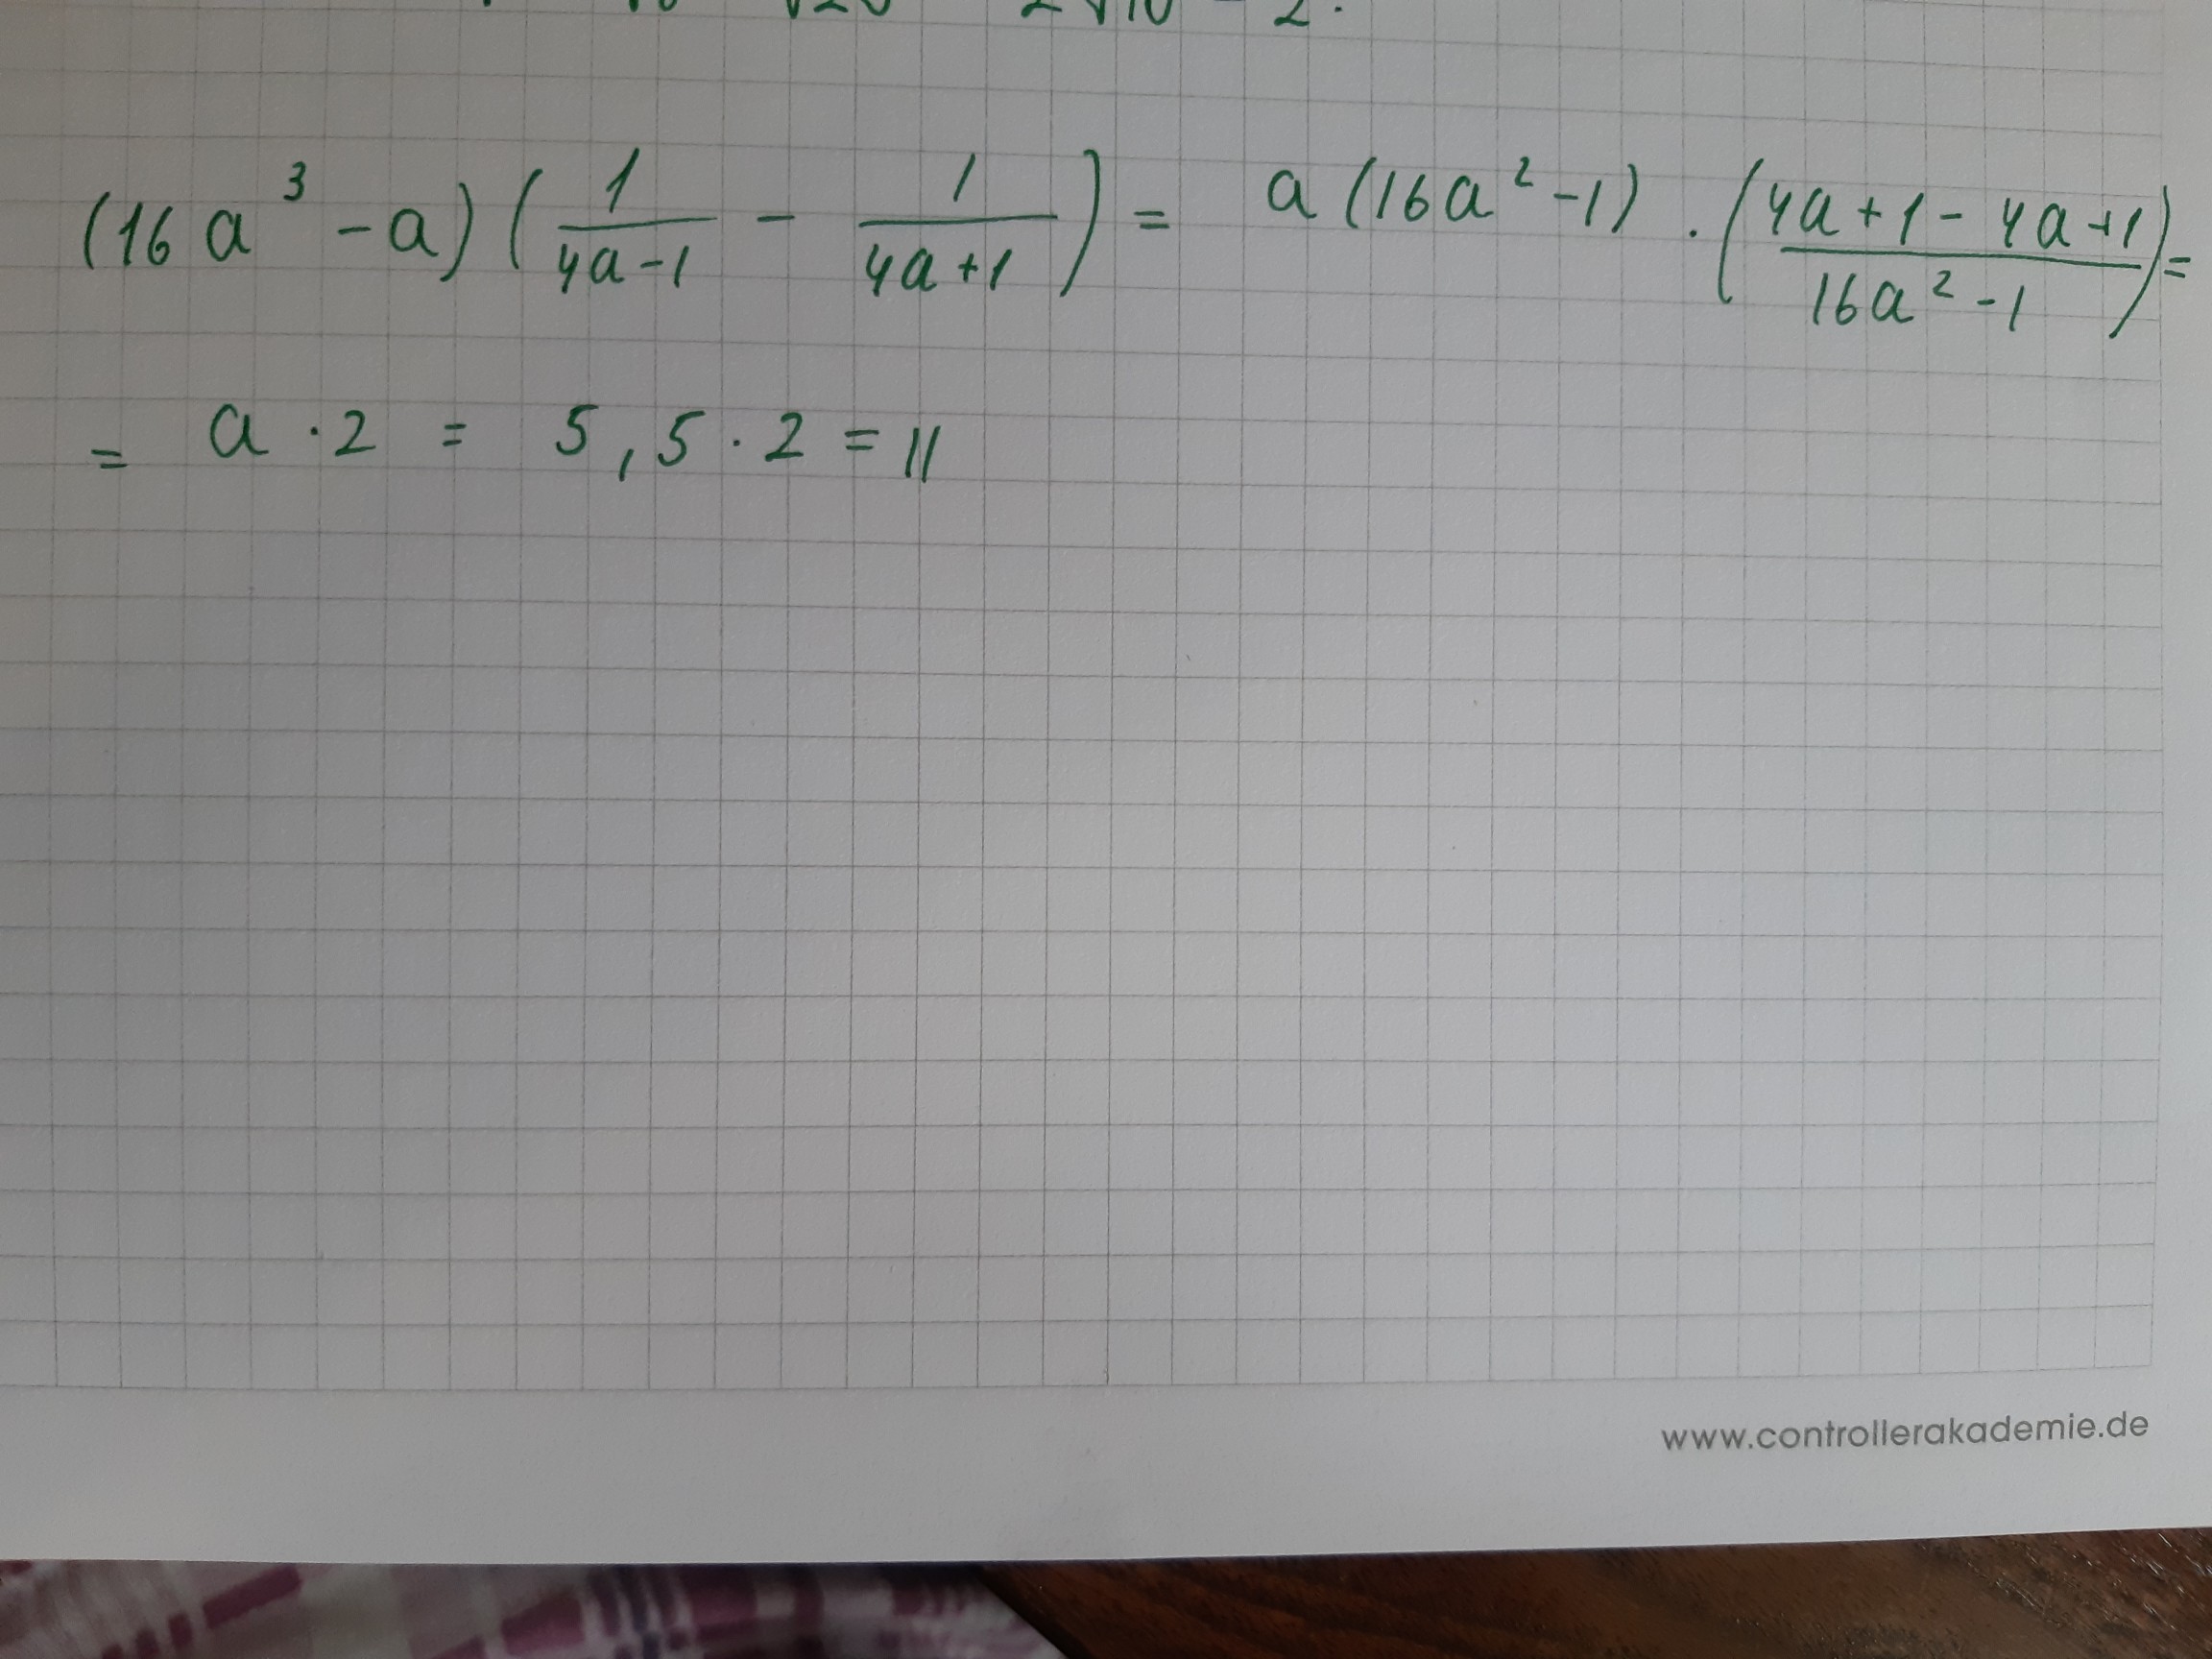 (16a³ - a) (1/(4a-1) - 1/(4a+1)) = a (16a² - 1) · ((4a + 1 - 4a + 1)/(16a² - 1)) =
= a · 2 = 5,5 · 2 = 11
www.controllerakademie.de